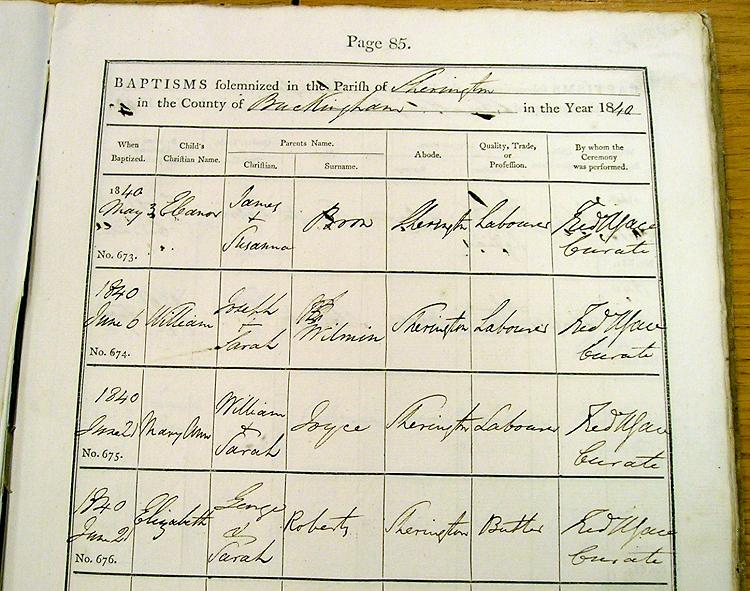 Page 85.
BAPTISMS solemnized in the Parish of Sherington
in the County of Buckingham in the Year 1840
When Baptized. Child's Christian Name. Parents Name. Christian. Surname. Abode. Quality, Trade, or Profession. By whom the Ceremony was performed.
1840
May 3 Eleanor James + Susanna Boon Sherington Labourer Curate
No. 673.
1840
June 6 William Joseph + Sarah Wilmin Sherington Labourer Curate
No. 674.
1840
June 21 Mary Ann William + Sarah Joyce Sherington Labourer Curate
No. 675.
1840
June 21 Elizabeth George & Sarah Roberts Sherington Curate
No. 676.